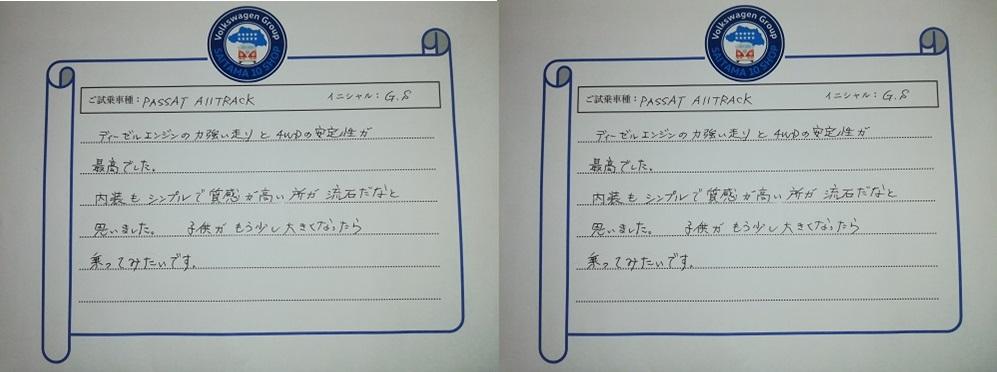 Volkswagen Group
SAITAMA 10 SHOP
ご試乗車種：PASSAT AllTRACK イニシャル：G.S
ディーゼルエンジンの力強い走りと4WDの安定性が
最高でした。
内装もシンプルで質感が高い所が流石だなと
思いました。 子供がもう少し大きくなったら
乗ってみたいです。
Volkswagen Group
SAITAMA 10 SHOP
ご試乗車種：PASSAT AllTRACK イニシャル：G.S
ディーゼルエンジンの力強い走りと4WDの安定性が
最高でした。
内装もシンプルで質感が高い所が流石だなと
思いました。 子供がもう少し大きくなったら
乗ってみたいです。